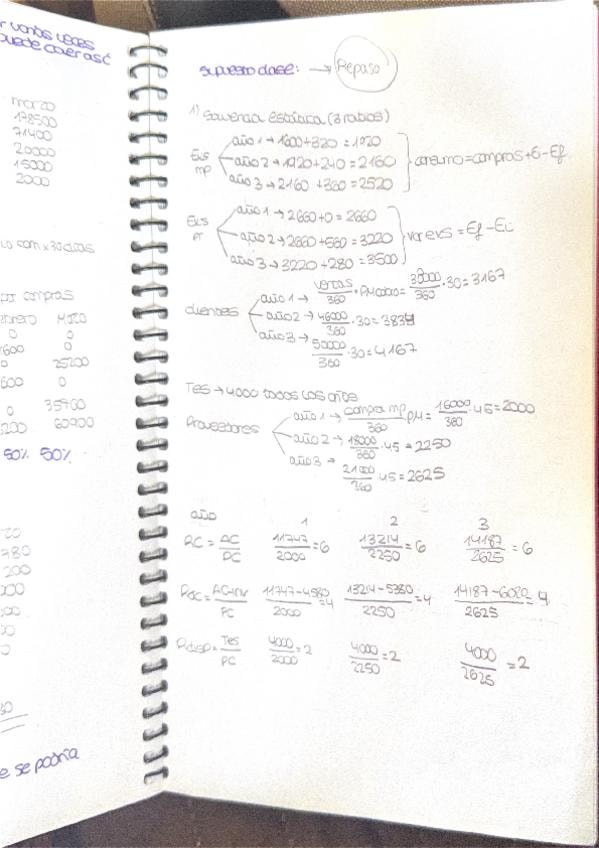 r varias veces
puede caer así
marzo
178500
71400
20000
15000
2000
com x 30 dias
por compras
ebrero Marzo
0 0
1600 0
0 25200
600 0
0 35700
200 60900
50% 50%
780
200
e se podria
supuesto clase: → Repaso
1) Solvencia estática (3 ratios)
Exis MP
año 1 → 1600+320 = 1920
año 2 → 1920+240 = 2160
año 3 → 2160 +360 = 2520
consumo = compras + Ei - Ef
Exis PT
año 1 → 2660+0 = 2660
año 2 → 2660+560 = 3220
año 3 → 3220+280 = 3500
var exis = Ef - Ei
clientes
año 1 → ventas/360 · PMcobro = 38000/360 · 30 = 3167
año 2 → 46000/360 · 30 = 3834
año 3 → 50000/360 · 30 = 4167
Tes → 4000 todos los años
Proveedores
año 1 → compra mp/360 · PM = 16000/360 · 45 = 2000
año 2 → 18000/360 · 45 = 2250
año 3 → 21000/360 · 45 = 2625
año 1 2 3
RC = AC/PC 11747/2000 = 6 13214/2250 = 6 14187/2625 = 6
AC-inv/PC 11747-4580/2000 = 4 13214-5380/2250 = 4 14187-6020/2625 = 4
Rdisp = Tes/PC 4000/2000 = 2 4000/2250 = 2 4000/2625 = 2